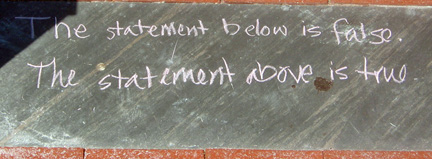 The statement below is false.
The statement above is true.